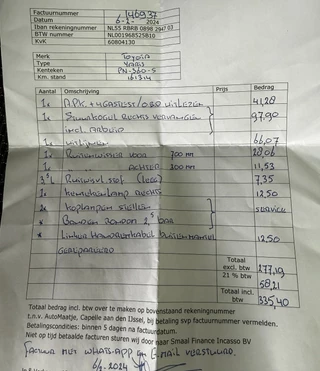 Factuurnummer 146937
Datum 6-1- 2024
Iban rekeningnummer NL55 RBRB 0898 2947 03
BTW nummer NL001968525B10
KvK 60804130
Merk TOYOTA
Type YARIS
Kenteken PN-360-S
Km. stand
Aantal Omschrijving Prijs Bedrag
1x A.P.K. + 4GASTEST/OBD UITLEZEN 41,28
1x RECHTS VERVANGEN 97,90
incl. ARBEID
1x UITLIJNEN 66,07
1x RUITENWISSER VOOR 700 mm 28,06
1x ACHTER 300 mm 11,53
RUITWISSERSTOF (LOS) 7,35
1x RECHTS 12,50
1x KOPLAMPEN STELLEN SERVICE
* BANDEN BAR
* LINKER
GEREPAREERD 12,50
Totaal excl. btw 277,19
21 % btw 58,21
Totaal incl. btw 335,40
Totaal bedrag incl. btw over te maken op bovenstaand rekeningnummer
t.n.v. AutoMaatje, Capelle aan den IJssel, bij betaling svp factuurnummer vermelden.
Betalingscondities: binnen 5 dagen na factuurdatum.
Niet op tijd betaalde facturen sturen wij door naar Smaal Finance Incasso BV
FACTUUR MET WHATS-APP EN E-MAIL VERSTUURD.
6/1-2024